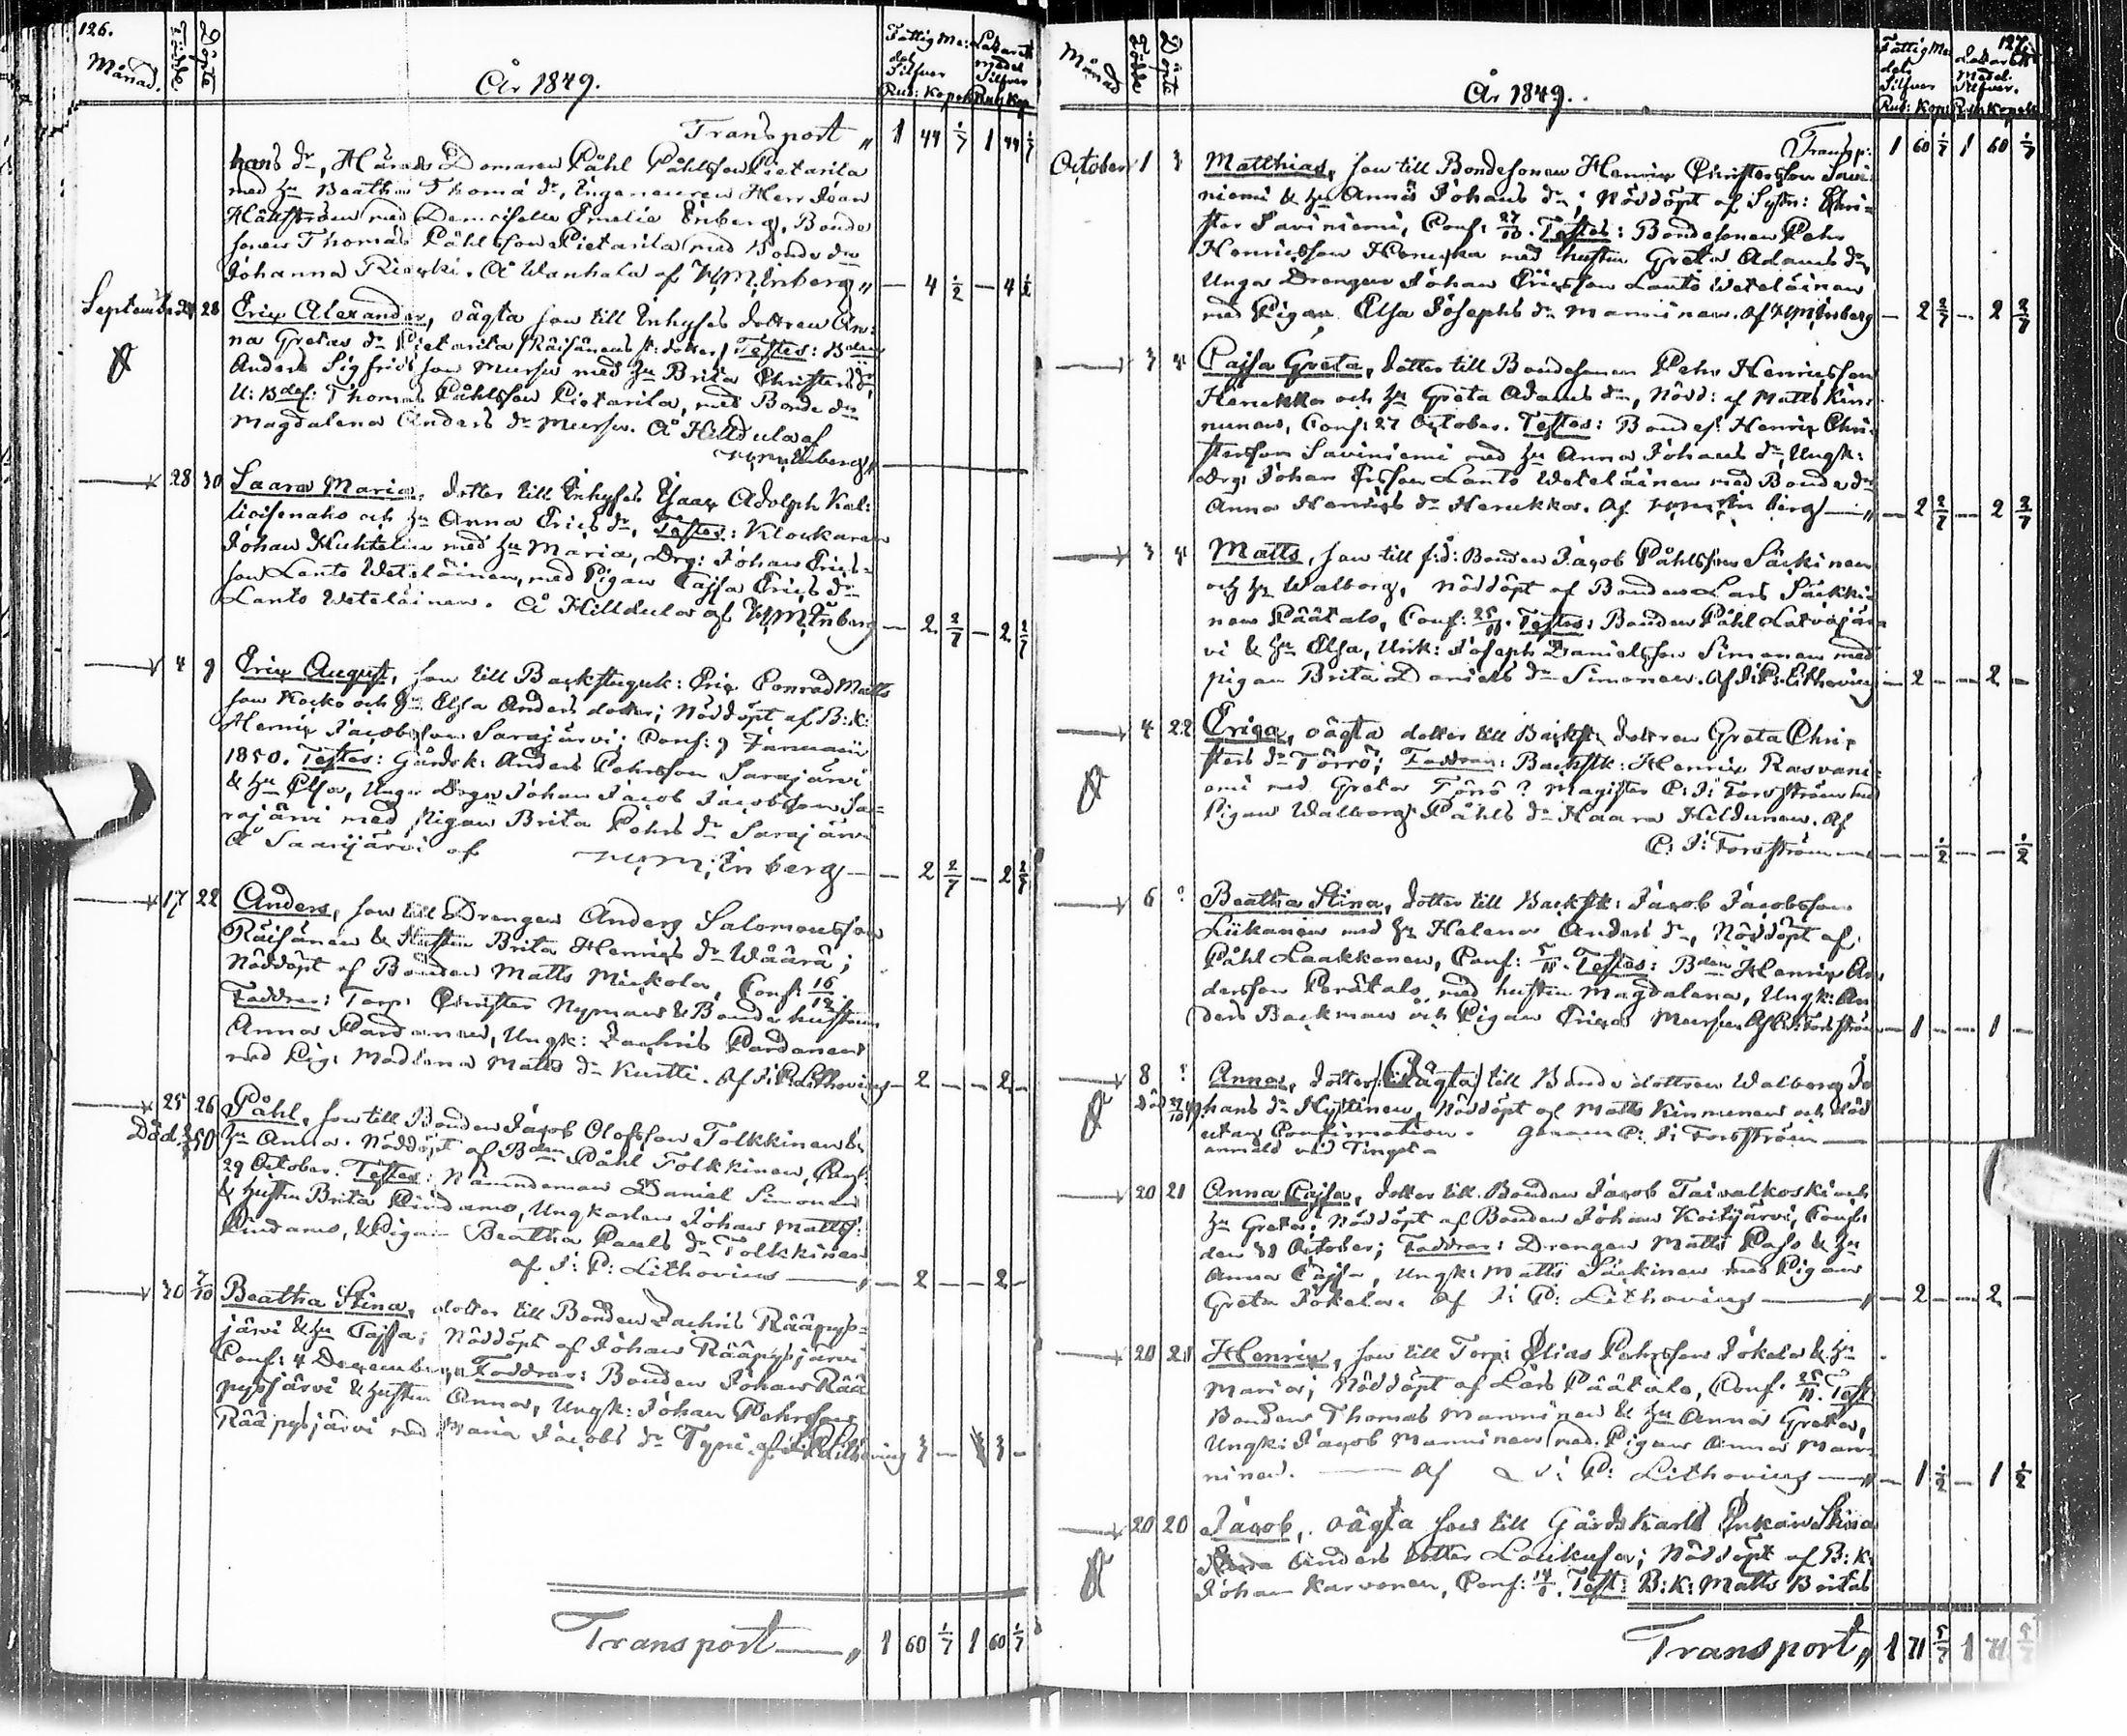 126.
Månad.
Födde
Döpte
År 1849.
Fattig Me:
del
Silfver
Rub: Kopek
Lazarett
medel
Silfver
Rub Kop
Transport " 1 44 1/7 1 44 1/7
hans dr, Härads Domaren Påhl Påhlsson Pietarila
med hu Beatha Thomæ dr, Ingenieuren Herr Johan
Hällström med Demoiselle Emelie Enberg, Bonde
sonen Thomas Påhlsson Pietarila med Bonde dn
Johanna Riecki. Å Wanhala af M. Enberg " — 4 1/2 — 4 1/2
September 24 28 Eric Alexander, oägta son till Inhyses dottren An-
na Gretas dr Pietarila /Räisänens st: dotter/ Testes: Bden
Anders Sigfridsson Mursu med hu Brita Christers dr,
U: Bdes: Thomas Påhlsson Pietarila, med Bonde dn
Magdalena Anders dr Mursu. Å Hilldula af
M. Enberg "
28 30 Saara Maria, dotter till Inhyses Isaac Adolph Kal-
lioisenaho och hu Anna Erics dr, Testes: Klockaren
Johan Huhtelin med hu Maria, Drg: Johan Erics-
son Lanto Weteläinen, med Pigan Cajsa Erics dr
Lanto Weteläinen. Å Hilldula af M. Enberg — 2 2/7 — 2 2/7
4 9 Eric August, son till Backstuguk: Eric Conrad Matts
son Kocko och hu Elsa Anders dotter; Nöddöpt af B: K:
Henric Jacobsson Sarajärvi; Conf: 9 Januarii
1850. Testes: Gårdsk: Anders Pehrsson Sarajärvi
& hu Elsa, Unge Drgn Johan Jacob Jacobsson Sa-
rajärvi med Pigan Brita Pehrs dr Sarajärvi
Å Saarijärvi af M. Enberg — 2 2/7 — 2 2/7
17 22 Anders, son till Drengen Anders Salomonsson
Räisänen & Hustru Brita Henrics dr Wäärä;
Nöddöpt af Bonden Matts Mickola, Conf: 16/12.
Faddrar: Torp: Christer Nyman & Bonde hustrun
Anna Pardanen, Ungk: Zachris Pardanen
med Pig: Madlena Matts dr Kurtti. Af J: P: Lithovius — 2 — — 2 —
25 26 Påhl, son till Bonden Jacob Olofsson Tolkkinen &
Död 50 hu Anna. Nöddöpt af Bden Påhl Tolkkinen, Conf:
29 October. Testes: Nämndeman Daniel Simonen
& hustru Brita Pindamo, Ungkarlen Johan Matts:
Pindamo, & Pigan Beatha Pauls dr Tolkkinen
af J: P: Lithovius " — 2 — — 2 —
30 7/10 Beatha Stina, dotter till Bonden Zachris Rääpys-
järvi & hu Cajsa; Nöddöpt af Johan Rääpysjärvi
Conf: 4 December, Faddrar: Bonden Johan Rää
pysjärvi & hustru Anna, Ungk: Johan Pehrsson
Rääpysjärvi med Maria Jacobs dr Tyni. af J: P: Lithovius 3 — 3 —
Transport " 1 60 1/7 1 60 1/7
127.
Månad
Födde
Döpte
År 1849.
Fattig Me
dels
Silfver
Rub: Kope
Lazarett
Medel.
Silfver.
Rub Kopek
Transp: 1 60 1/7 1 60 1/7
October 1 3 Matthias, son till Bondesonen Henric Christersson Savi-
niemi & hu Anna Johans dr; Nöddöpt af Sytn: Chri-
ster Saviniemi, Conf: 27/10. Testes: Bondesonen Pehr
Henricsson Heneckka med hustru Greta Adams dr,
Unga Drengen Johan Ericsson Lanto Weteläinen
med Pigan Elsa Josephs dr Manninen. Af M. Enberg — 2 2/7 — 2 2/7
3 4 Cajsa Greta, dotter till Bondesonen Pehr Henricsson
Henekka och hu Greta Adams dr, Nödd: af Matts Kin-
nunen, Conf: 27 October. Testes: Bondes: Henric Chri-
stersson Saviniemi med hu Anna Johans dr, Ungk:
Drg: Johan Ersson Lanto Weteläinen med Bonde dn
Anna Henrics dr Henekka. Af M. Enberg — " — 2 2/7 — 2 2/7
3 4 Matts, son till f: d: Bonden Jacob Påhlsson Säckinen
och hu Walborg, Nöddöpt af Bonden Lars Säckki-
nen Päätalo, Conf: 25/11. Testes: Bonden Påhl Latvajär-
vi & hu Elsa, Unk: Joseph Danielsson Simonen med
pigan Brita Daniels dr Simonen. Af J: P: Lithovius — 2 — — 2 —
4 22 Erica, oägta dotter till Backst: dottren Greta Chri-
sters dr Törrö; Faddrar: Backstk: Henric Rasvani-
emi med Greta Törrö? Magister C: J: Forsström med
Pigan Walborg Påhls dr Haara Hildunen. Af
C: J: Forsström — — 1/2 — — 1/2
6 ? Beatha Stina, dotter till Backstk: Jacob Jacobsson
Liikanen med hu Helena Anders dr, Nöddöpt af
Påhl Laakkonen, Conf: 5/11. Testes: Bden Henric An-
dersson Perätalo med hustru Magdalena, Ungk: An-
ders Backman och Pigan Erica Mursu. Af C: J: Forsström — 1 — — 1 —
8 ? Anna, dotter /: Oägta / till Bonde dottren Walborg Jo
död 27/10 49. hans dr Hyttinen, Nöddöpt af Matts Kinnunen och död
utan Confirmation. Genom C: J: Forsström
anmäld vid Tinget
20 21 Anna Cajsa, dotter till Bonden Jacob Taivalkoski och
hu Greta; Nöddöpt af Bonden Johan Koitijärvi, Conf:
den 28 October; Faddrar: Drengen Matts Paso & hu
Anna Cajsa, Ungk: Matts Säckinen med Pigan
Greta Jokela. Af J: P: Lithovius " — 2 — — 2 —
20 21 Henric, son till Torp: Elias Pehrsson Jokela & hu
Maria; Nöddöpt af Lars Päätalo, Conf: 25/11. Test:
Bonden Thomas Manninen & hu Anna Greta,
Ungk: Jacob Manninen med Pigan Anna Man-
ninen. — Af J: P: Lithovius — " — 1 1/2 — 1 1/2
20 20 Jacob, oägta son till Gårdskarls Enkan Stina
Anders dotter Loukusa; Nöddöpt af B: K:
Johan Karvonen, Conf: Test: B: K: Matts Britas
Transport " 1 71 5/7 1 71 5/7